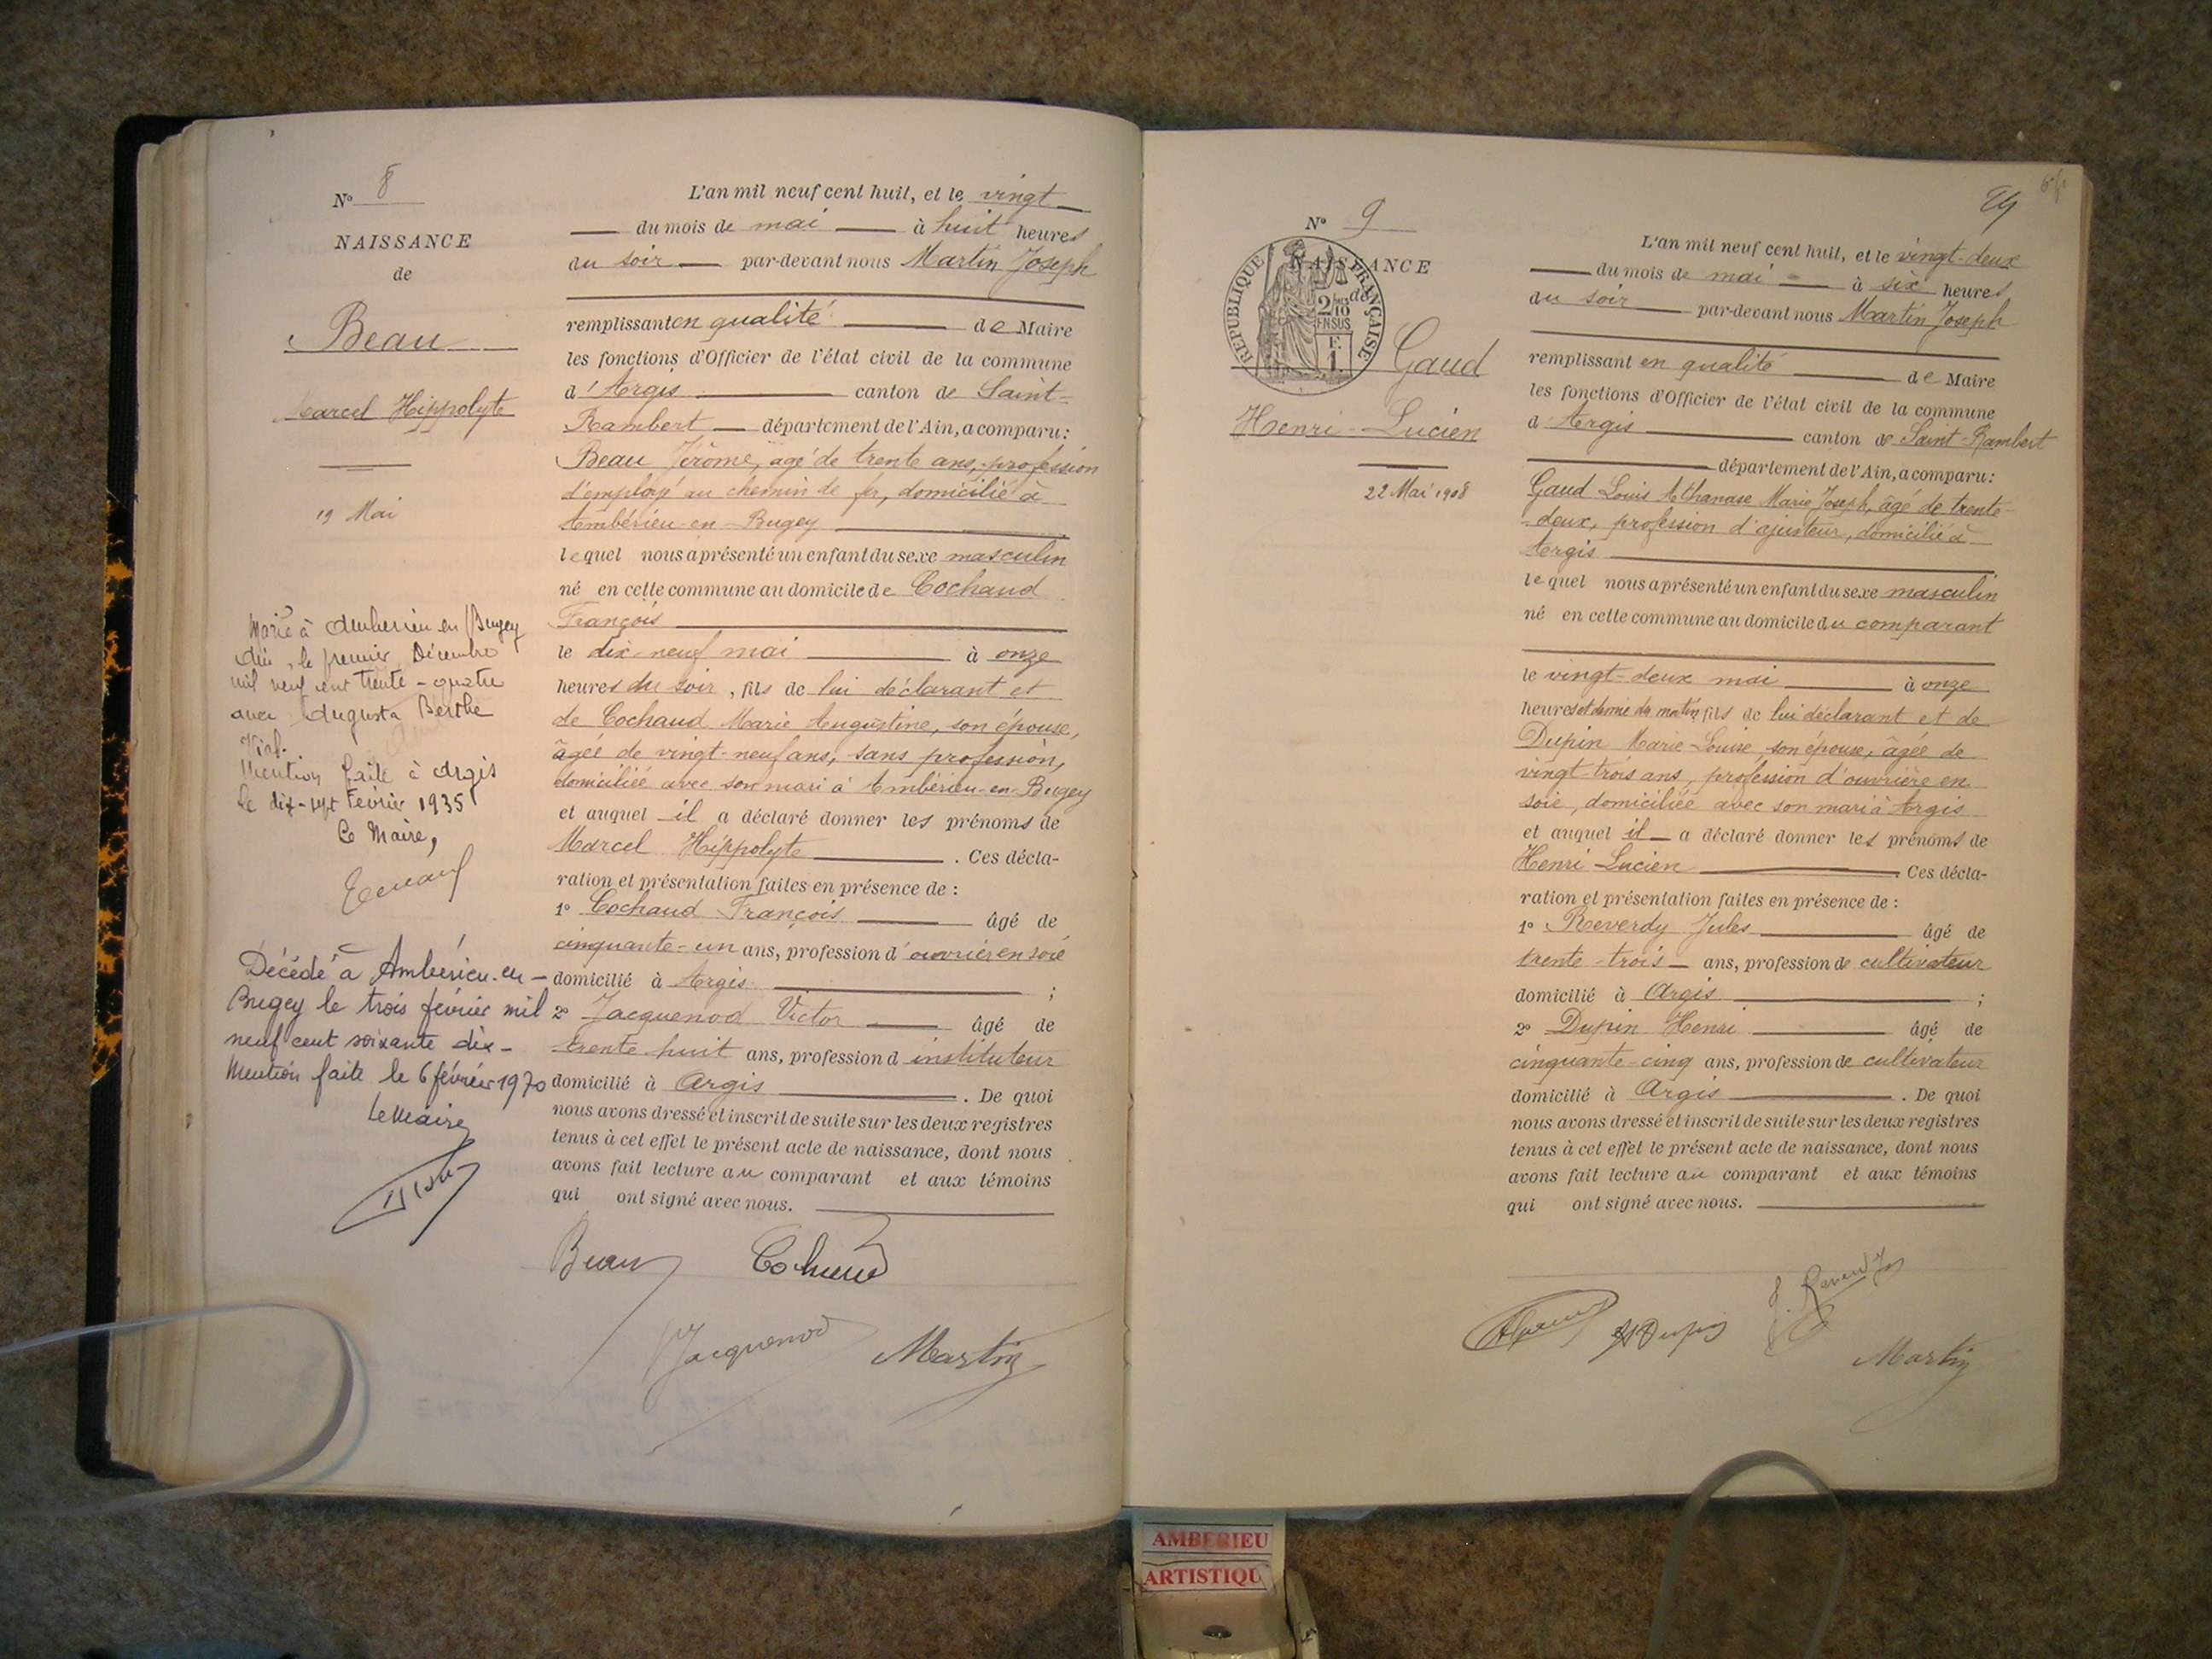 N° 8
NAISSANCE
de
Beau
Marcel Hippolyte
19 Mai
Marié à Ambérieu en Bugey
Ain, le premier Décembre
mil neuf cent trente-quatre
avec Augusta Berthe
Vial.
Mention faite à Argis
le dix-sept Février 1935
Le Maire,
Décédé à Ambérieu-en-
Bugey le trois février mil
neuf cent soixante dix-
Mention faite le 6 février 1970
Le Maire
L'an mil neuf cent huit, et le vingt
du mois de mai à huit heures
du soir par-devant nous Martin Joseph
remplissant en qualité de Maire
les fonctions d'Officier de l'état civil de la commune
d'Argis canton de Saint-
Rambert département de l'Ain, a comparu:
Beau Jérôme, agé de trente ans, profession
d'employé au chemin de fer, domicilié à
Ambérieu-en-Bugey
lequel nous a présenté un enfant du sexe masculin
né en cette commune au domicile de Cochaud
François
le dix-neuf mai à onze
heures du soir, fils de lui déclarant et
de Cochaud Marie Augustine, son épouse,
âgée de vingt-neuf ans, sans profession,
domiciliée avec son mari à Ambérieu-en-Bugey
et auquel il a déclaré donner les prénoms de
Marcel Hippolyte . Ces décla-
ration et présentation faites en présence de :
1° Cochaud François âgé de
cinquante-un ans, profession d'ouvrier en soie
domicilié à Argis ;
2° Jacquenod Victor âgé de
trente huit ans, profession d instituteur
domicilié à Argis . De quoi
nous avons dressé et inscrit de suite sur les deux registres
tenus à cet effet le présent acte de naissance, dont nous
avons fait lecture au comparant et aux témoins
qui ont signé avec nous.
Beau Cochaud
Jacquenod Martin
24
N° 9
NAISSANCE
de
REPUBLIQUE FRANÇAISE
2/10
EN SUS
F.
1.
Gaud
Henri-Lucien
22 Mai 1908
L'an mil neuf cent huit, et le vingt-deux
du mois de mai à six heures
du soir par-devant nous Martin Joseph
remplissant en qualité de Maire
les fonctions d'Officier de l'état civil de la commune
d Argis canton de Saint-Rambert
département de l'Ain, a comparu:
Gaud Louis Athanase Marie Joseph, âgé de trente-
deux, profession d'ajusteur, domicilié à
Argis
lequel nous a présenté un enfant du sexe masculin
né en cette commune au domicile du comparant
le vingt-deux mai à onze
heures et demie du matin fils de lui déclarant et de
Dupin Marie-Louise, son épouse, âgée de
vingt-trois ans, profession d'ouvrière en
soie, domiciliée avec son mari à Argis
et auquel il a déclaré donner les prénoms de
Henri Lucien . Ces décla-
ration et présentation faites en présence de :
1° Reverdy Jules âgé de
trente-trois ans, profession de cultivateur
domicilié à Argis ;
2° Dupin Henri âgé de
cinquante-cinq ans, profession de cultivateur
domicilié à Argis . De quoi
nous avons dressé et inscrit de suite sur les deux registres
tenus à cet effet le présent acte de naissance, dont nous
avons fait lecture au comparant et aux témoins
qui ont signé avec nous.
H Dupin
J. Reverdy
Martin
AMBERIEU
ARTISTIQU